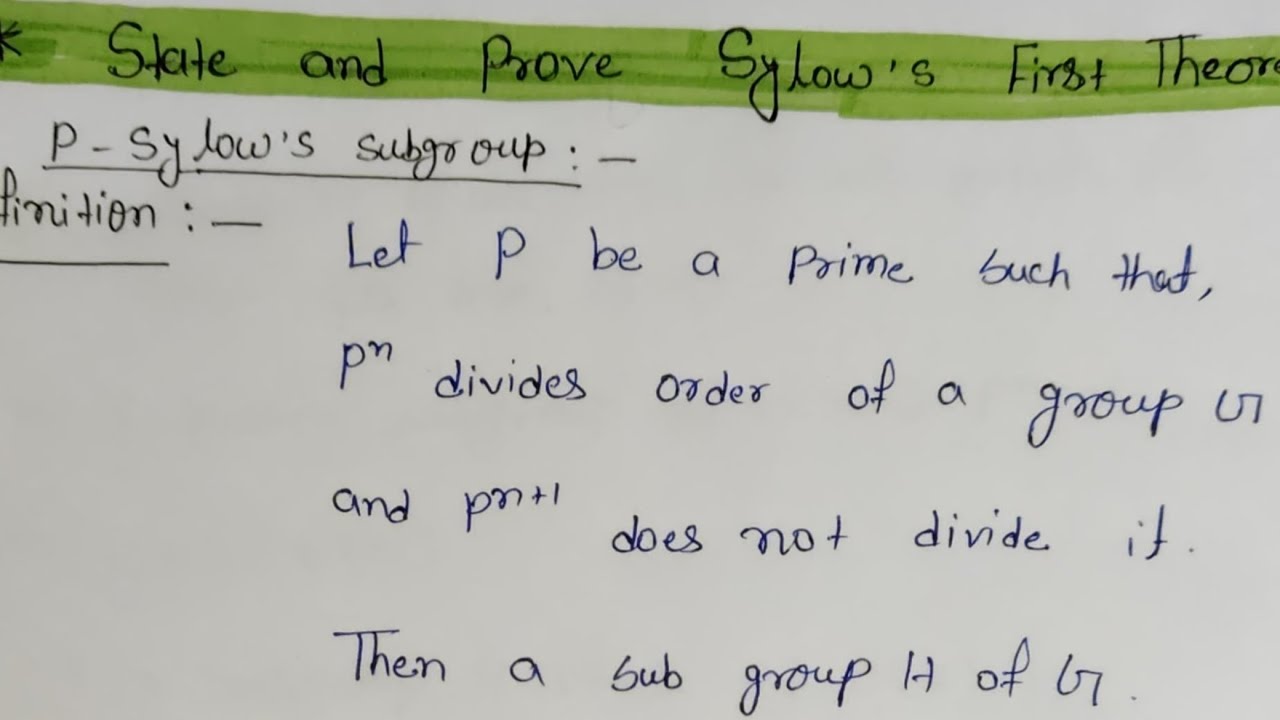 * State and Prove Sylow's First Theore
P-Sylow's subgroup : —
finition : —
Let P be a Prime such that,
pⁿ divides order of a group G
and pⁿ⁺¹ does not divide it.
Then a sub group H of G.